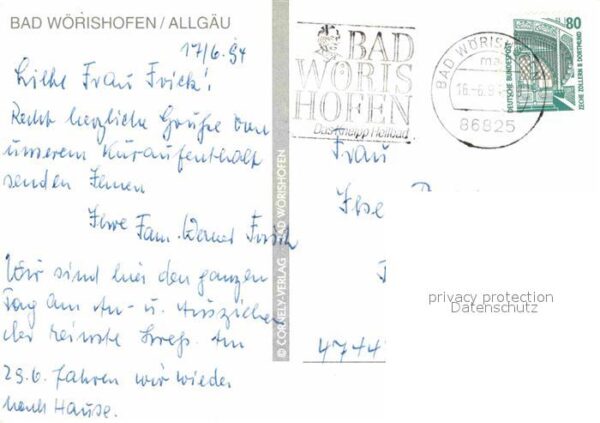 BAD WÖRISHOFEN / ALLGÄU
17/6.94
Liebe Frau Frick!
Recht herzliche Grüße von
unserem Kuraufenthalt
senden Ihnen
Ihre Fam. Werner
Wir sind hier den ganzen
Tag am An- u. Ausziehen
der reinste Streß. Am
29.6. fahren wir wieder
nach Hause.
© CORNELY-VERLAG BAD WÖRISHOFEN
BAD
WÖRIS
HOFEN
Das Kneipp Heilbad
BAD WÖRISH
ma
16.-6.9
86825
80
DEUTSCHE BUNDESPOST
ZECHE ZOLLERN II DORTMUND
Frau
Ilse
privacy protection
Datenschutz
4744